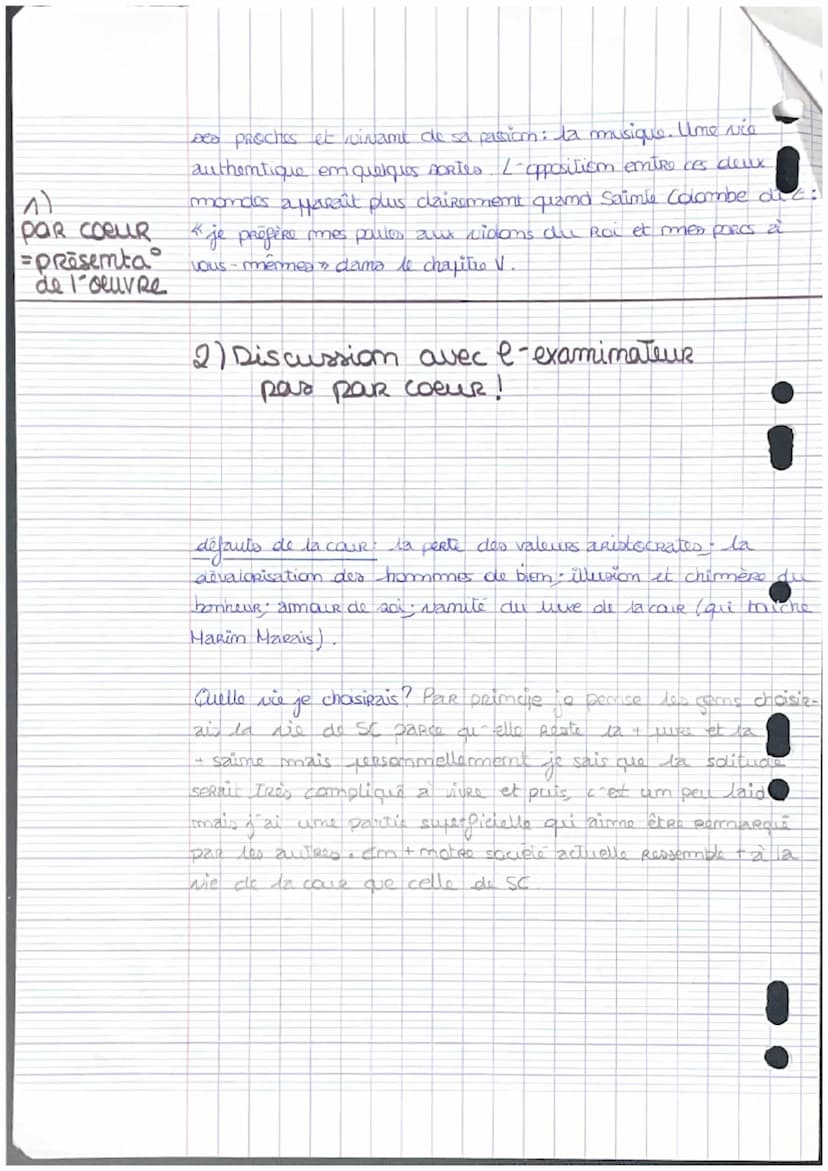 ses proches et vivant de sa passion : la musique. Une vie
authentique en quelques sortes. L'opposition entre ces deux
mondes apparaît plus clairement quand Sainte Colombe dit :
« je préfère mes poules aux violons du Roi et mes porcs à
vous-mêmes » dans le chapitre V.
1)
par coeur
=présenta°
de l'oeuvre
2) Discussion avec l'examinateur
pas par coeur !
défauts de la cour : la perte des valeurs aristocrates ; la
dévalorisation des hommes de bien ; illusion et chimère du
bonheur ; amour de soi ; vanité du luxe de la cour (qui
Marin Marais).
Quelle vie je choisirais ? Par principe je pense les gens choisir-
ais la vie de SC parce qu'elle reste la + pure et la
+ saine mais personnellement je sais que la solitude
serait très compliqué à vivre et puis, c'est un peu laid
mais j'ai une partie superficielle qui aime être remarqué
par les autres. En + notre société actuelle ressemble + à la
vie de la cour que celle de SC